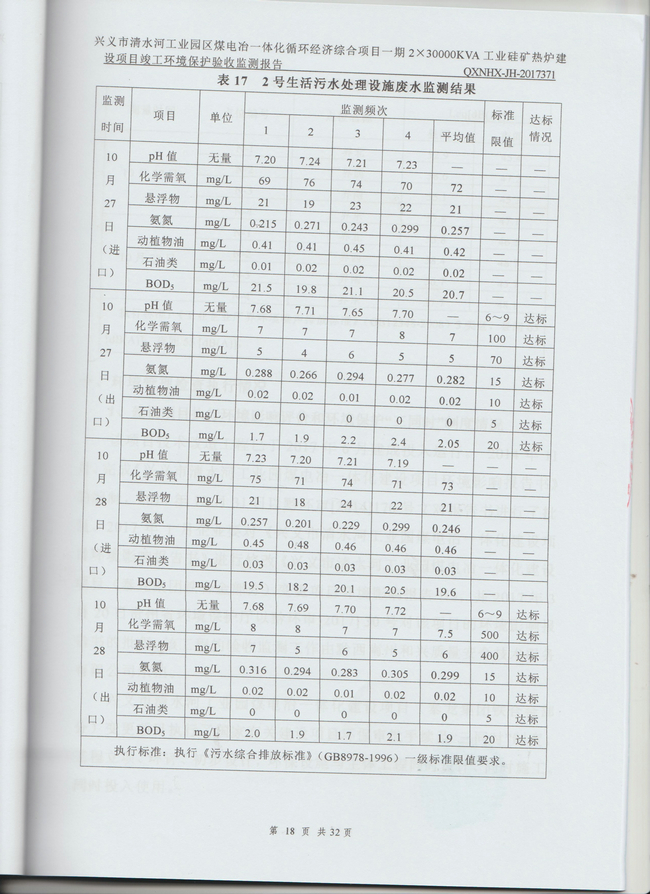 兴义市清水河工业园区煤电冶一体化循环经济综合项目一期2×30000KVA工业硅矿热炉建
设项目竣工环境保护验收监测报告 QXNHX-JH-2017371
表 17 2 号生活污水处理设施废水监测结果
监测时间 项目 单位 监测频次 标准限值 达标情况
1 2 3 4 平均值
10月27日（进口）
pH 值 无量 7.20 7.24 7.21 7.23 — — —
化学需氧 mg/L 69 76 74 70 72 — —
悬浮物 mg/L 21 19 23 22 21 — —
氨氮 mg/L 0.215 0.271 0.243 0.299 0.257 — —
动植物油 mg/L 0.41 0.41 0.45 0.41 0.42 — —
石油类 mg/L 0.01 0.02 0.02 0.02 0.02 — —
BOD₅ mg/L 21.5 19.8 21.1 20.5 20.7 — —
10月27日（出口）
pH 值 无量 7.68 7.71 7.65 7.70 — 6～9 达标
化学需氧 mg/L 7 7 7 8 7 100 达标
悬浮物 mg/L 5 4 6 5 5 70 达标
氨氮 mg/L 0.288 0.266 0.294 0.277 0.282 15 达标
动植物油 mg/L 0.02 0.02 0.01 0.02 0.02 10 达标
石油类 mg/L 0 0 0 0 0 5 达标
BOD₅ mg/L 1.7 1.9 2.2 2.4 2.05 20 达标
10月28日（进口）
pH 值 无量 7.23 7.20 7.21 7.19 — — —
化学需氧 mg/L 75 71 74 71 73 — —
悬浮物 mg/L 21 18 24 22 21 — —
氨氮 mg/L 0.257 0.201 0.229 0.299 0.246 — —
动植物油 mg/L 0.45 0.48 0.46 0.46 0.46 — —
石油类 mg/L 0.03 0.03 0.03 0.03 0.03 — —
BOD₅ mg/L 19.5 18.2 20.1 20.5 19.6 — —
10月28日（出口）
pH 值 无量 7.68 7.69 7.70 7.72 — 6～9 达标
化学需氧 mg/L 8 8 7 7 7.5 500 达标
悬浮物 mg/L 7 5 6 5 6 400 达标
氨氮 mg/L 0.316 0.294 0.283 0.305 0.299 15 达标
动植物油 mg/L 0.02 0.02 0.01 0.02 0.02 10 达标
石油类 mg/L 0 0 0 0 0 5 达标
BOD₅ mg/L 2.0 1.9 1.7 2.1 1.9 20 达标
执行标准：执行《污水综合排放标准》（GB8978-1996）一级标准限值要求。
第 18 页 共 32 页